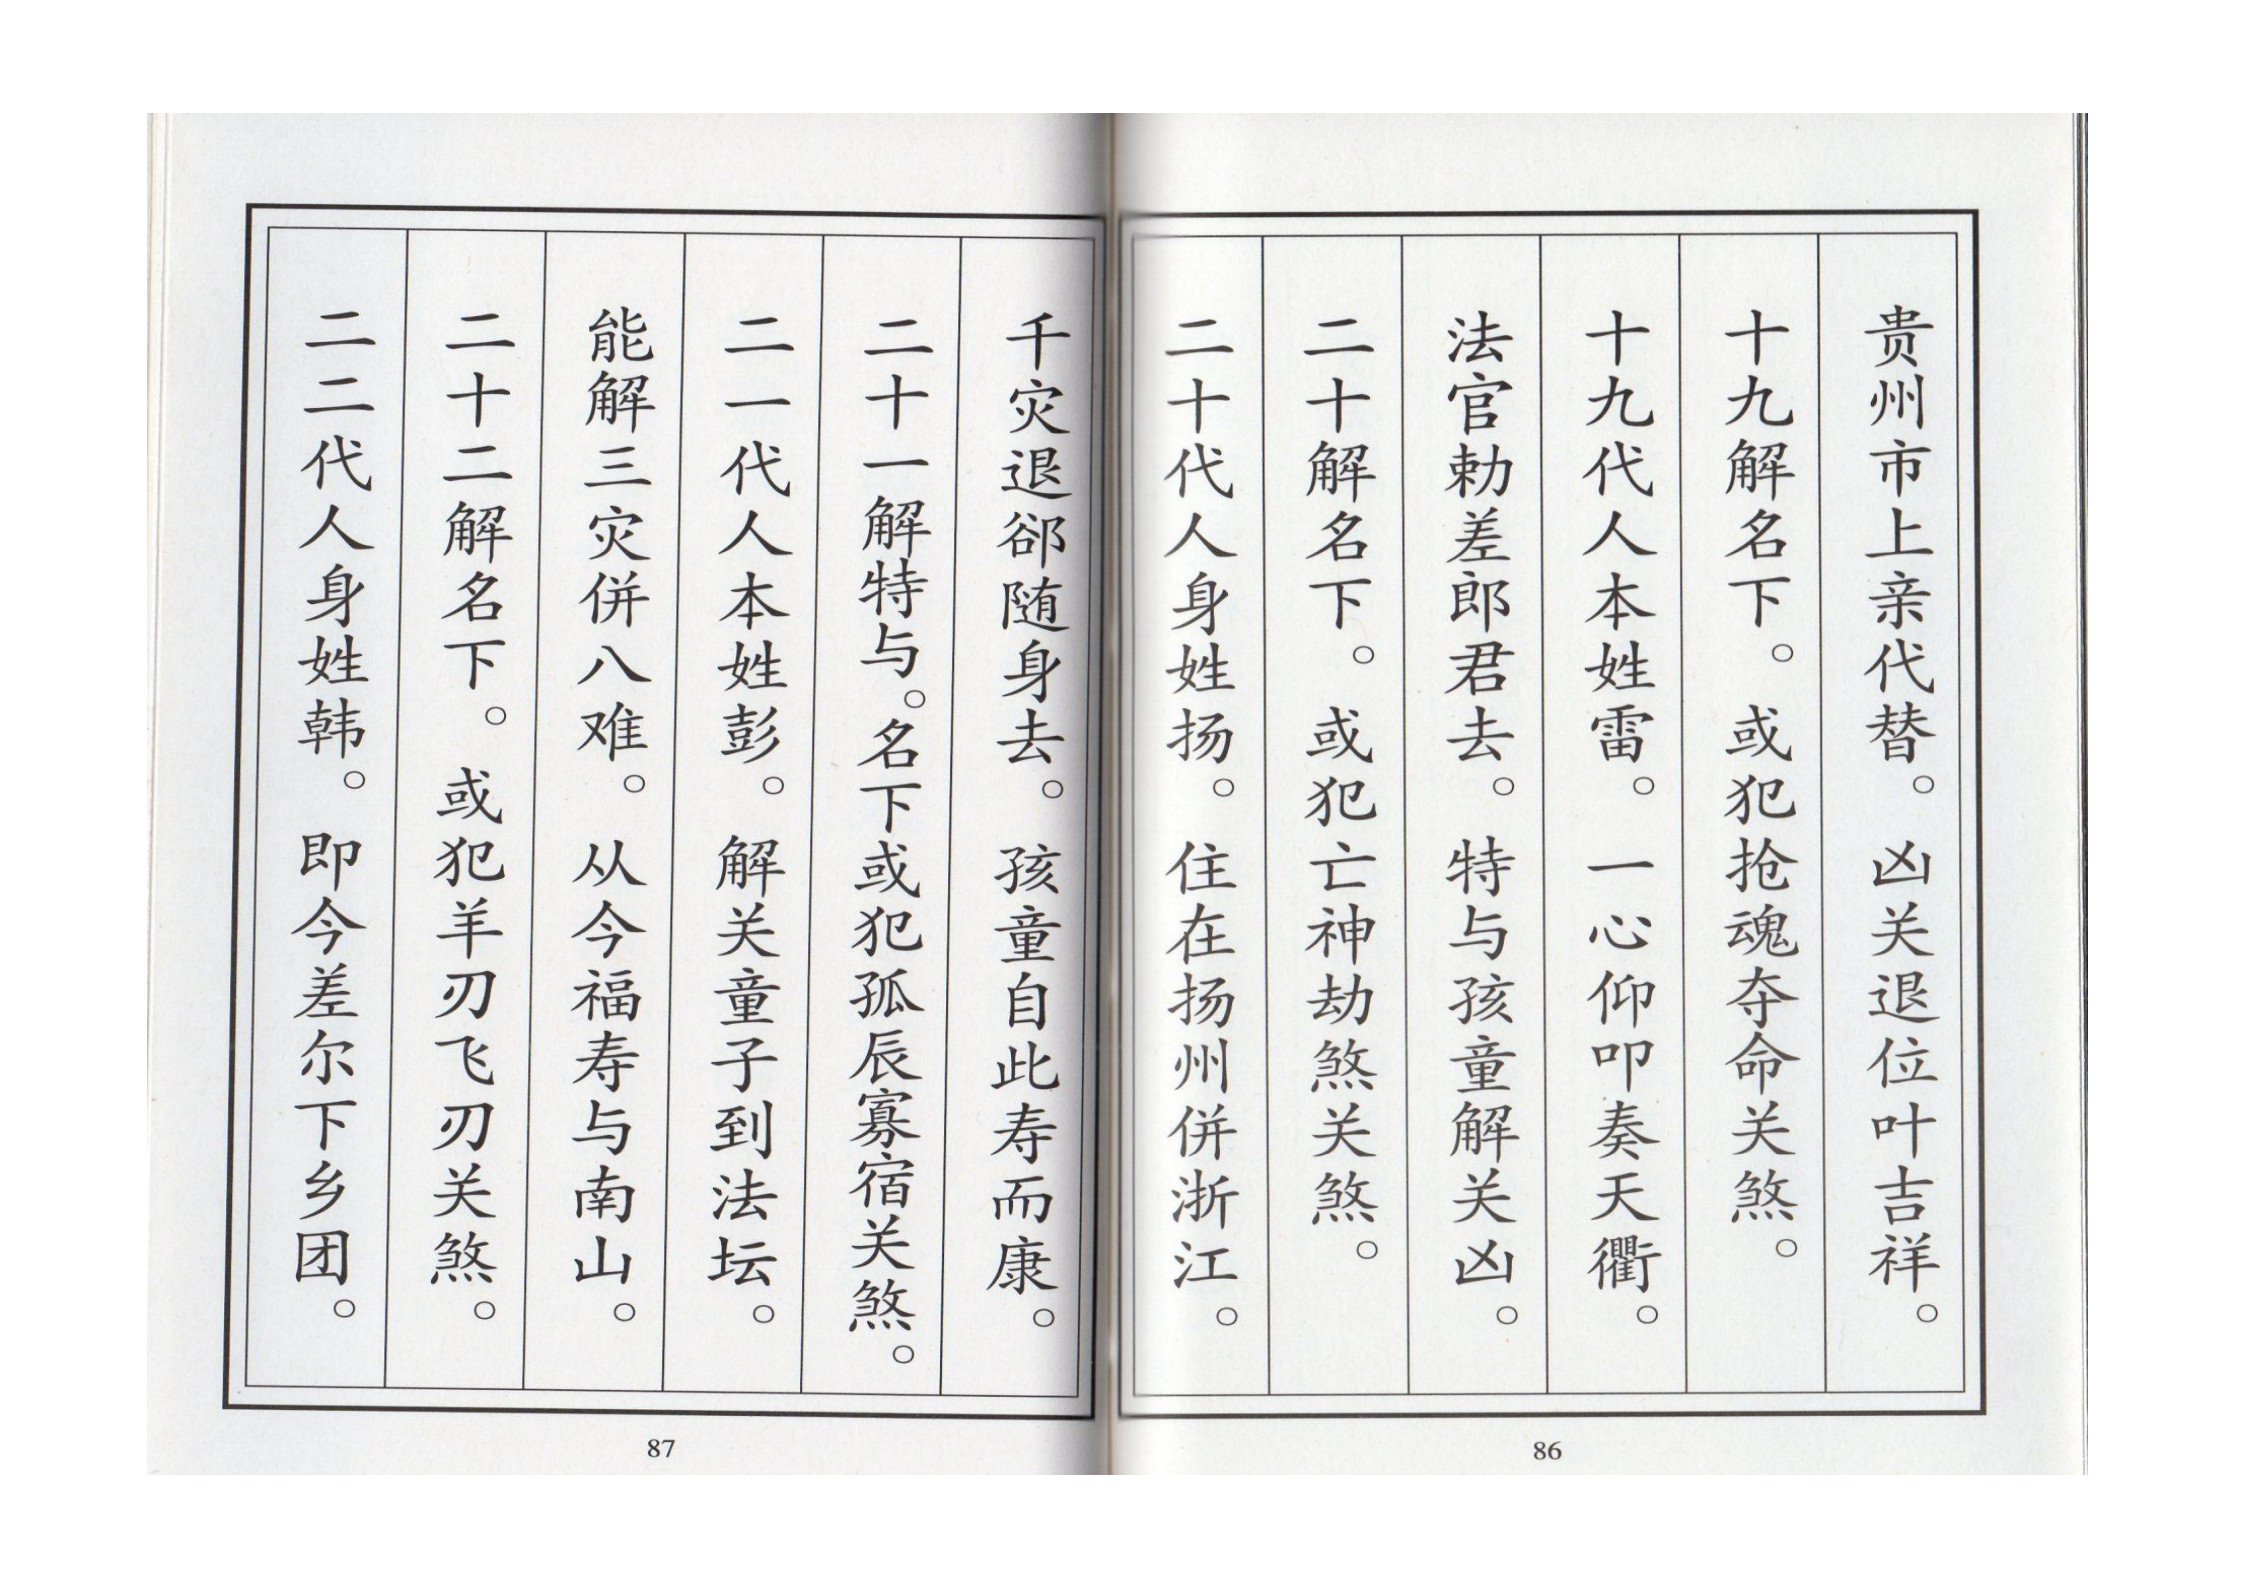 贵州市上亲代替。凶关退位叶吉祥。
十九解名下。或犯抢魂夺命关煞。
十九代人本姓雷。一心仰叩奏天衢。
法官勅差郎君去。特与孩童解关凶。
二十解名下。或犯亡神劫煞关煞。
二十代人身姓扬。住在扬州併浙江。
86
千灾退郤随身去。孩童自此寿而康。
二十一解特与。名下或犯孤辰寡宿关煞。
二一代人本姓彭。解关童子到法坛。
能解三灾併八难。从今福寿与南山。
二十二解名下。或犯羊刃飞刃关煞。
二二代人身姓韩。即今差尔下乡团。
87